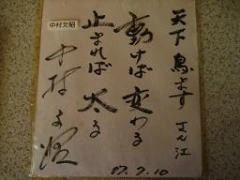 天下鳥ます さん江
動けば変わる
止まれば太る
中村文昭
中村文昭
07.7.10